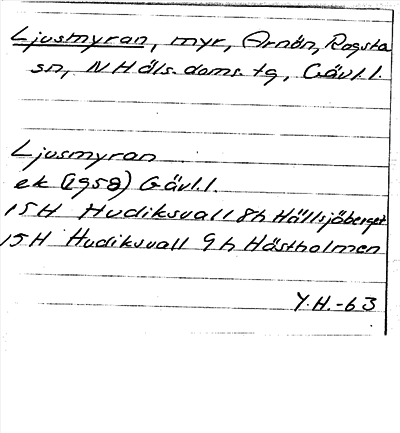 Ljusmyran, myr, Arnön, Rogsta
sn, N Häls. doms. tg, Gävl.l.
Ljusmyran
ek (1958) Gävl.l.
15H Hudiksvall 8h Hällsjöberget
15H Hudiksvall 9h Hästholmen
Y.H.-63